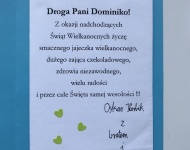 Droga Pani Dominiko!
Z okazji nadchodzących
Świąt Wielkanocnych życzę
smacznego jajeczka wielkanocnego,
dużego zająca czekoladowego,
zdrowia niezawodnego,
wielu radości
i przez całe Święta samej wesołości !!!
z